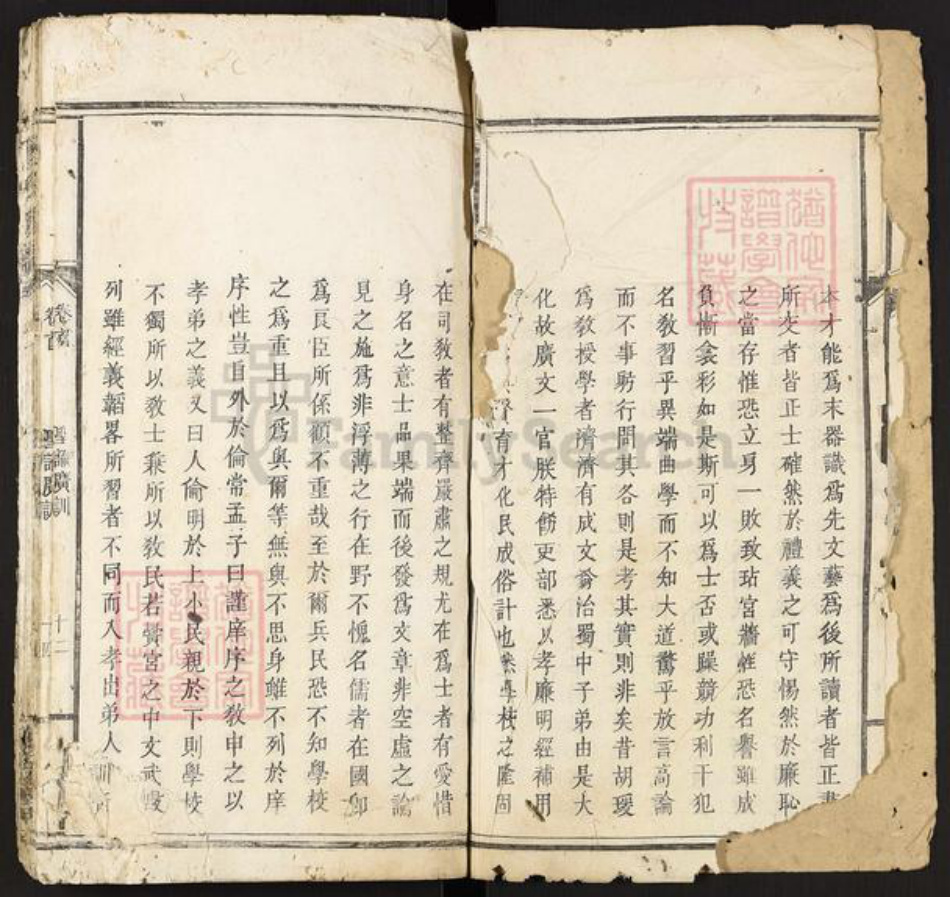 本才能為末器識為先文藝為後所讀者皆正書
所交者皆正士確然於禮義之可守惕然於廉恥
之當存惟恐立身一敗致玷宮牆惟恐名譽雖成
負慚衾影如是斯可以為士否或躁競功利干犯
名教習乎異端曲學而不知大道騖乎放言高論
而不事躬行問其名則是考其實則非矣昔胡瑗
為教授學者濟濟有成文翁治蜀中子弟由是大
化故廣文一官朕特飭吏部悉以孝廉明經補用
育才化民成俗計也然學校之隆固
在司教者有整齊嚴肅之規尤在為士者有愛惜
身名之意士品果端而後發為文章非空虛之論
見之施為非浮薄之行在野不愧名儒者在國即
為良臣所係顧不重哉至於爾兵民恐不知學校
之為重且以為與爾等無與不思身雖不列於庠
序性豈自外於倫常孟子曰謹庠序之教申之以
孝弟之義又曰人倫明於上小民親於下則學校
不獨所以教士兼所以教民若黌宮之中文武
列雖經義韜畧所習者不同而入孝出弟人
卷首
聖諭廣訓
十二
FamilySearch